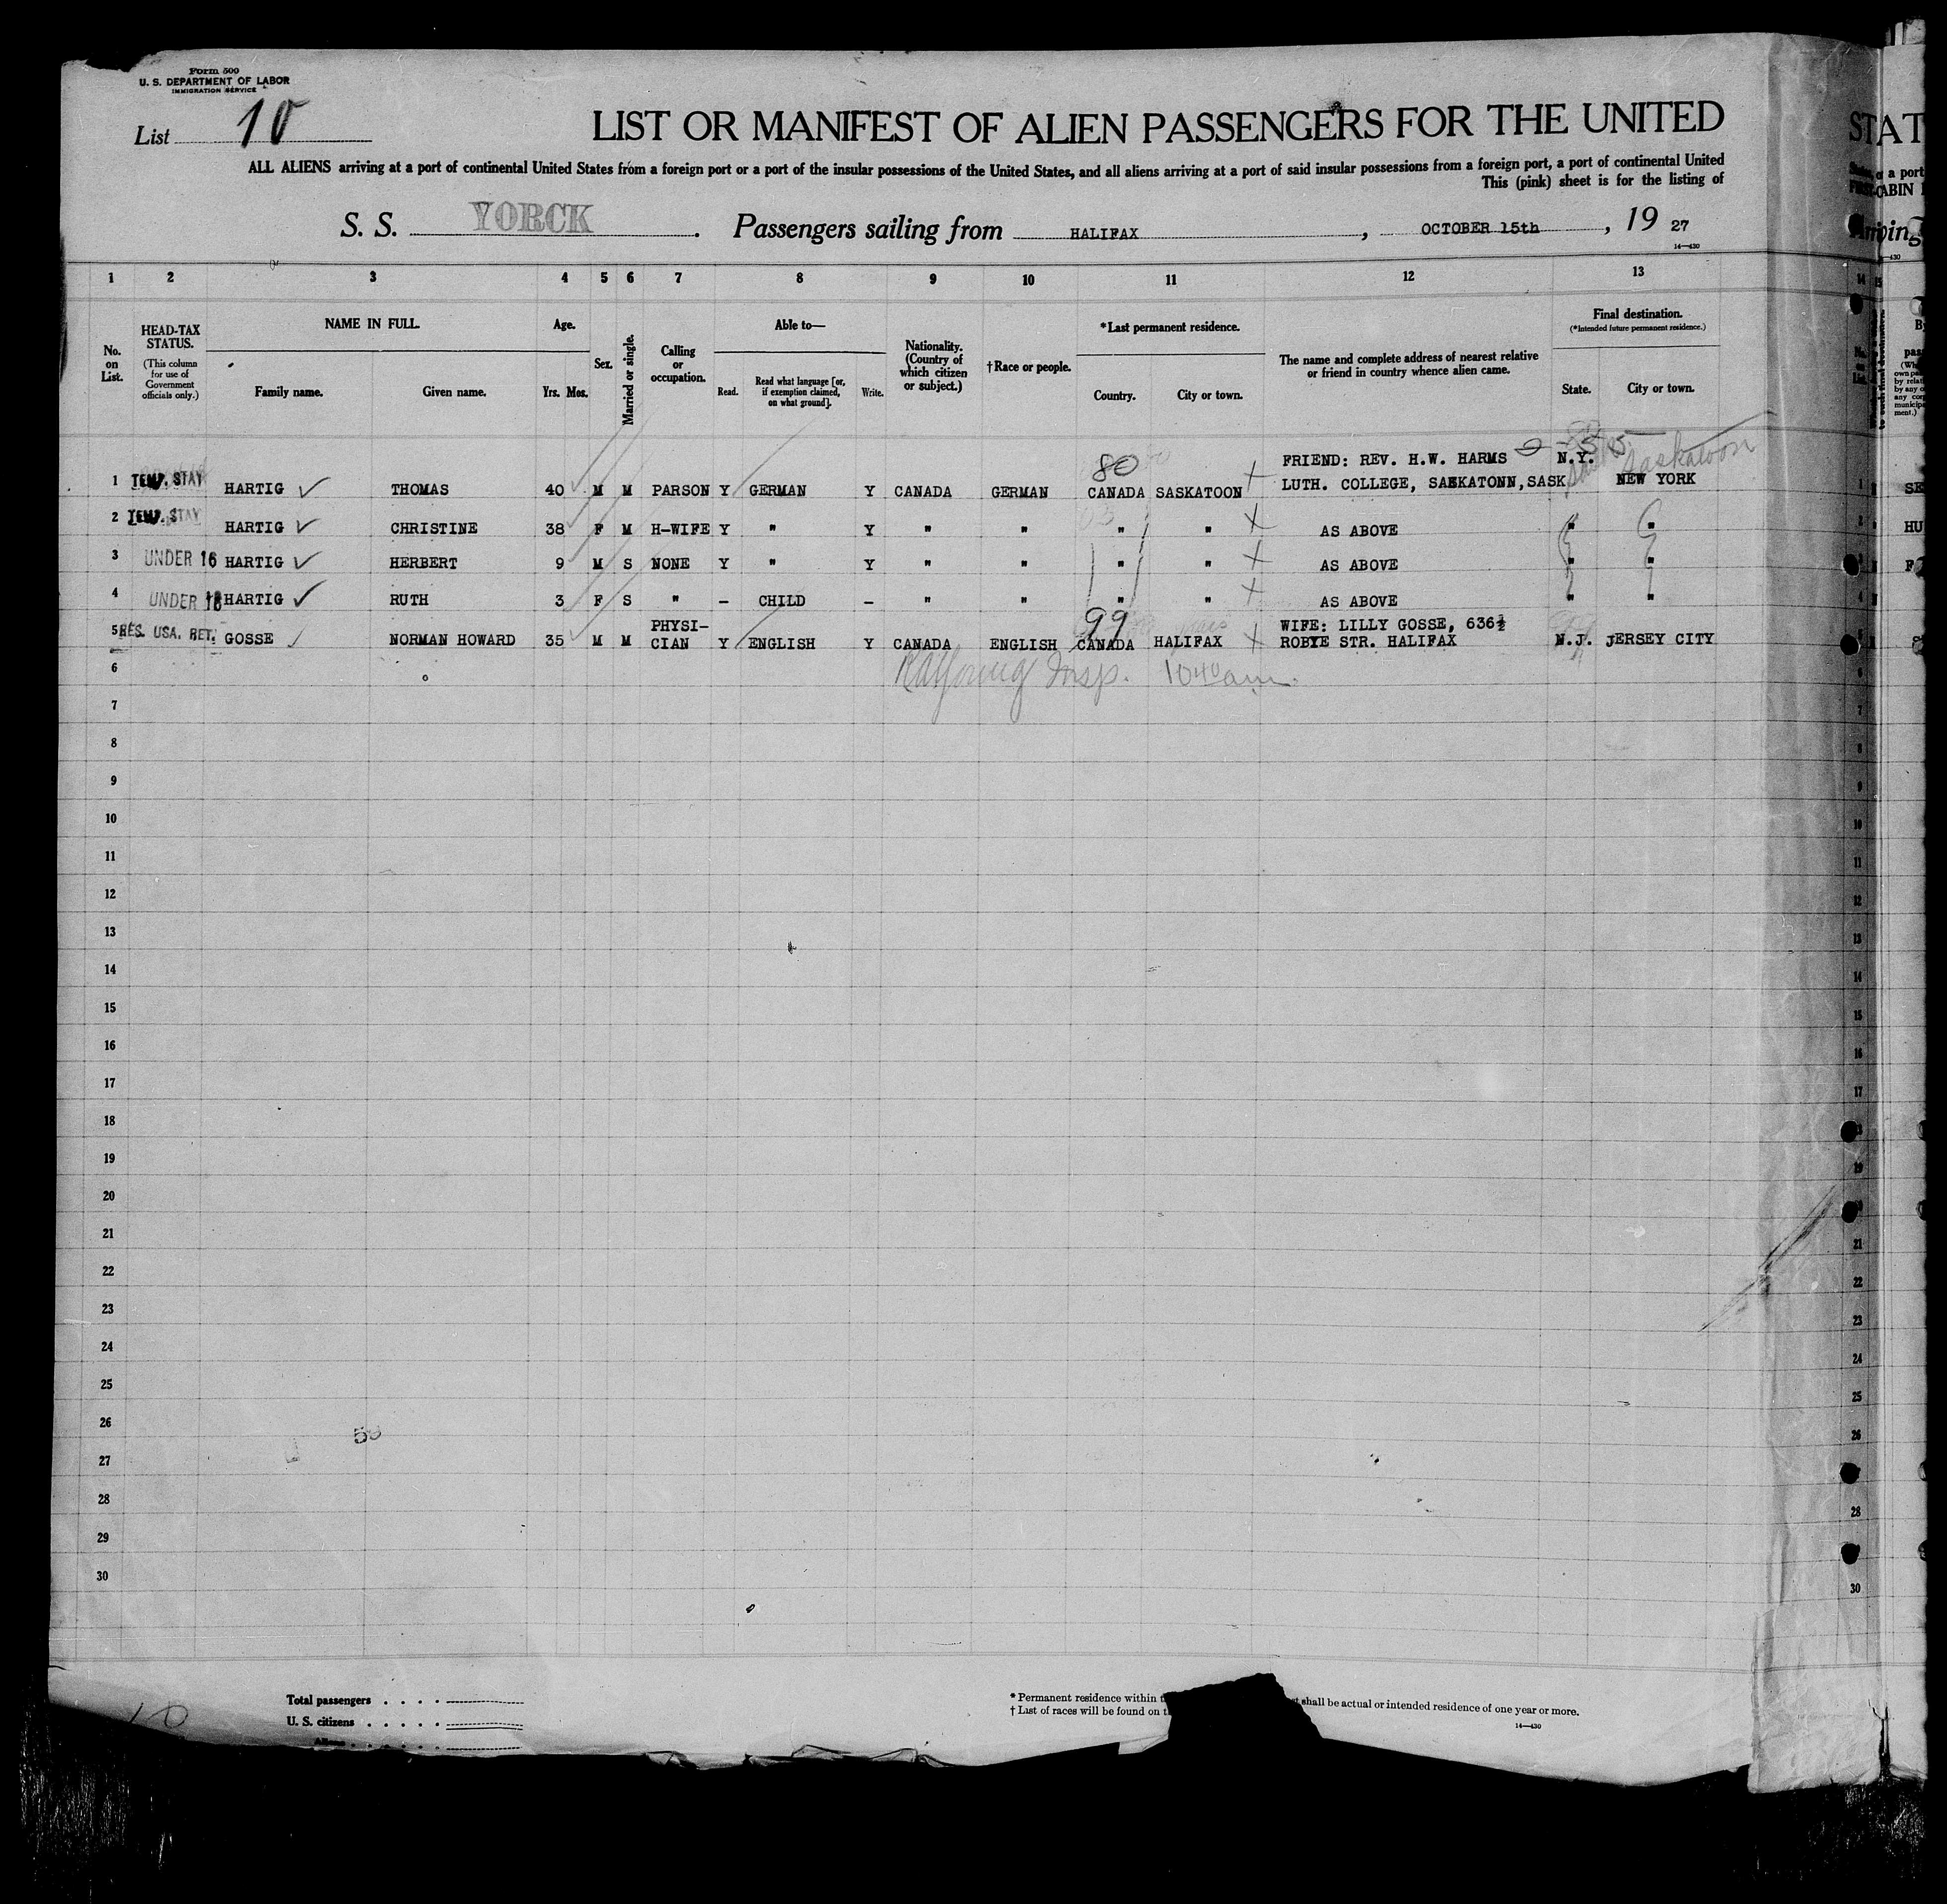 Form 500
U. S. DEPARTMENT OF LABOR
IMMIGRATION SERVICE
List 10
LIST OR MANIFEST OF ALIEN PASSENGERS FOR THE UNITED
STAT
ALL ALIENS arriving at a port of continental United States from a foreign port or a port of the insular possessions of the United States, and all aliens arriving at a port of said insular possessions from a foreign port, a port of continental United
This (pink) sheet is for the listing of
S. S. YORCK. Passengers sailing from HALIFAX, OCTOBER 15th, 19 27
14—430
1 2 3 4 5 6 7 8 9 10 11 12 13
HEAD-TAX STATUS.
(This column for use of Government officials only.)
No. on List.
NAME IN FULL.
Family name. Given name.
Age.
Yrs. Mos.
Sex.
Married or single.
Calling or occupation.
Able to—
Read. Read what language [or, if exemption claimed, on what ground]. Write.
Nationality. (Country of which citizen or subject.)
†Race or people.
*Last permanent residence.
Country. City or town.
The name and complete address of nearest relative or friend in country whence alien came.
Final destination.
(*Intended future permanent residence.)
State. City or town.
80
Saskatoon
FRIEND: REV. H.W. HARMS N.Y.
1 TEMP. STAY HARTIG THOMAS 40 M M PARSON Y GERMAN Y CANADA GERMAN CANADA SASKATOON LUTH. COLLEGE, SASKATONN, SASK NEW YORK
2 TEMP. STAY HARTIG CHRISTINE 38 F M H-WIFE Y " Y " " " " AS ABOVE " "
3 UNDER 16 HARTIG HERBERT 9 M S NONE Y " Y " " " " AS ABOVE " "
4 UNDER 16 HARTIG RUTH 3 F S " - CHILD - " " " " AS ABOVE " "
99
PHYSI- WIFE: LILLY GOSSE, 636½
5 RES. USA. RET. GOSSE NORMAN HOWARD 35 M M CIAN Y ENGLISH Y CANADA ENGLISH CANADA HALIFAX ROBIE STR. HALIFAX N.J. JERSEY CITY
6 Insp. 10 40 am
7
8
9
10
11
12
13
14
15
16
17
18
19
20
21
22
23
24
25
26
27
28
29
30
Total passengers
U. S. citizens
Aliens
10
* Permanent residence within
shall be actual or intended residence of one year or more.
† List of races will be found on
14—430